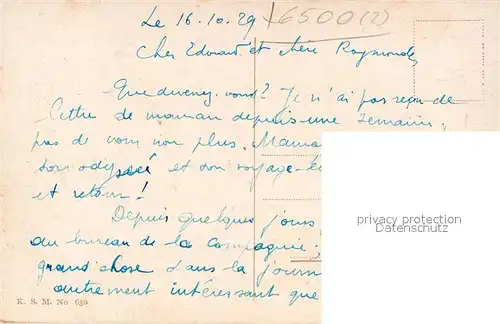 Le 16.10.29
6500(2)
Cher Edouard et chère Raymonde
Que devenez-vous? Je n'ai pas reçu de
lettre de maman depuis une semaine,
pas de vous non plus. Maman
son odyssée et son voyage
et retour!
Depuis quelques jours
au bureau de la compagnie
grand chose dans la journ
autrement intéressant que
privacy protection
Datenschutz
K. S. M. No 630